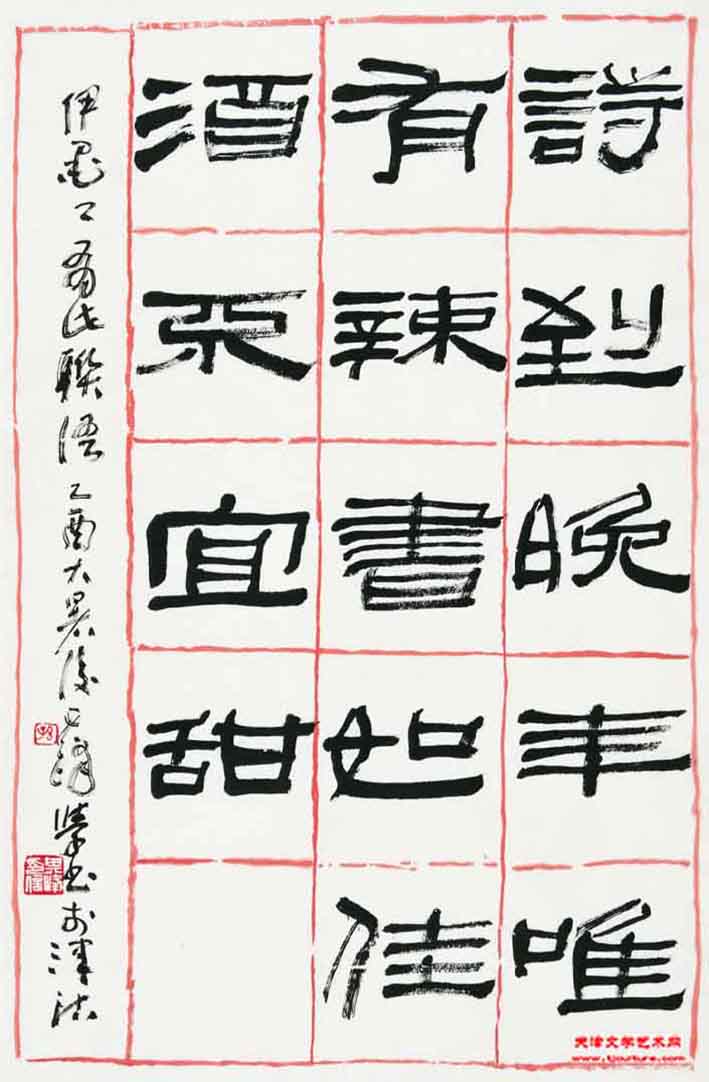 詩到晚年唯
有辣書如佳
酒不宜甜
伊墨公有此聯語乙酉大暑後學書於津沽
天津文学艺术网
www.tjculture.com